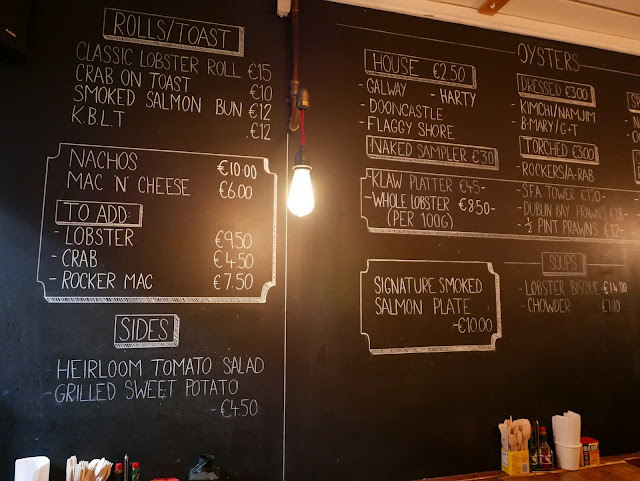 ROLLS/TOAST
CLASSIC LOBSTER ROLL €15
CRAB ON TOAST €10
SMOKED SALMON BUN €12
K.B.L.T €12
NACHOS €10.00
MAC 'N' CHEESE €6.00
TO ADD:
- LOBSTER €9.50
- CRAB €4.50
- ROCKER MAC €7.50
SIDES
HEIRLOOM TOMATO SALAD
- GRILLED SWEET POTATO
- €4.50
OYSTERS
HOUSE €2.50
- GALWAY - HARTY
- DOONCASTLE
- FLAGGY SHORE
NAKED SAMPLER €30
DRESSED €3.00
- KIMCHI/NAMJIM
- B.MARY/G+T
TORCHED €3.00
- ROCKERS/A-RAB
- KLAW PLATTER €45-
- WHOLE LOBSTER €8.50-
(PER 100G)
- SFA TOWER €120-
- DUBLIN BAY PRAWNS €18-
- ½ PINT PRAWNS €12-
SIGNATURE SMOKED
SALMON PLATE
- €10.00
SOUPS
- LOBSTER BISQUE €14.00
- CHOWDER